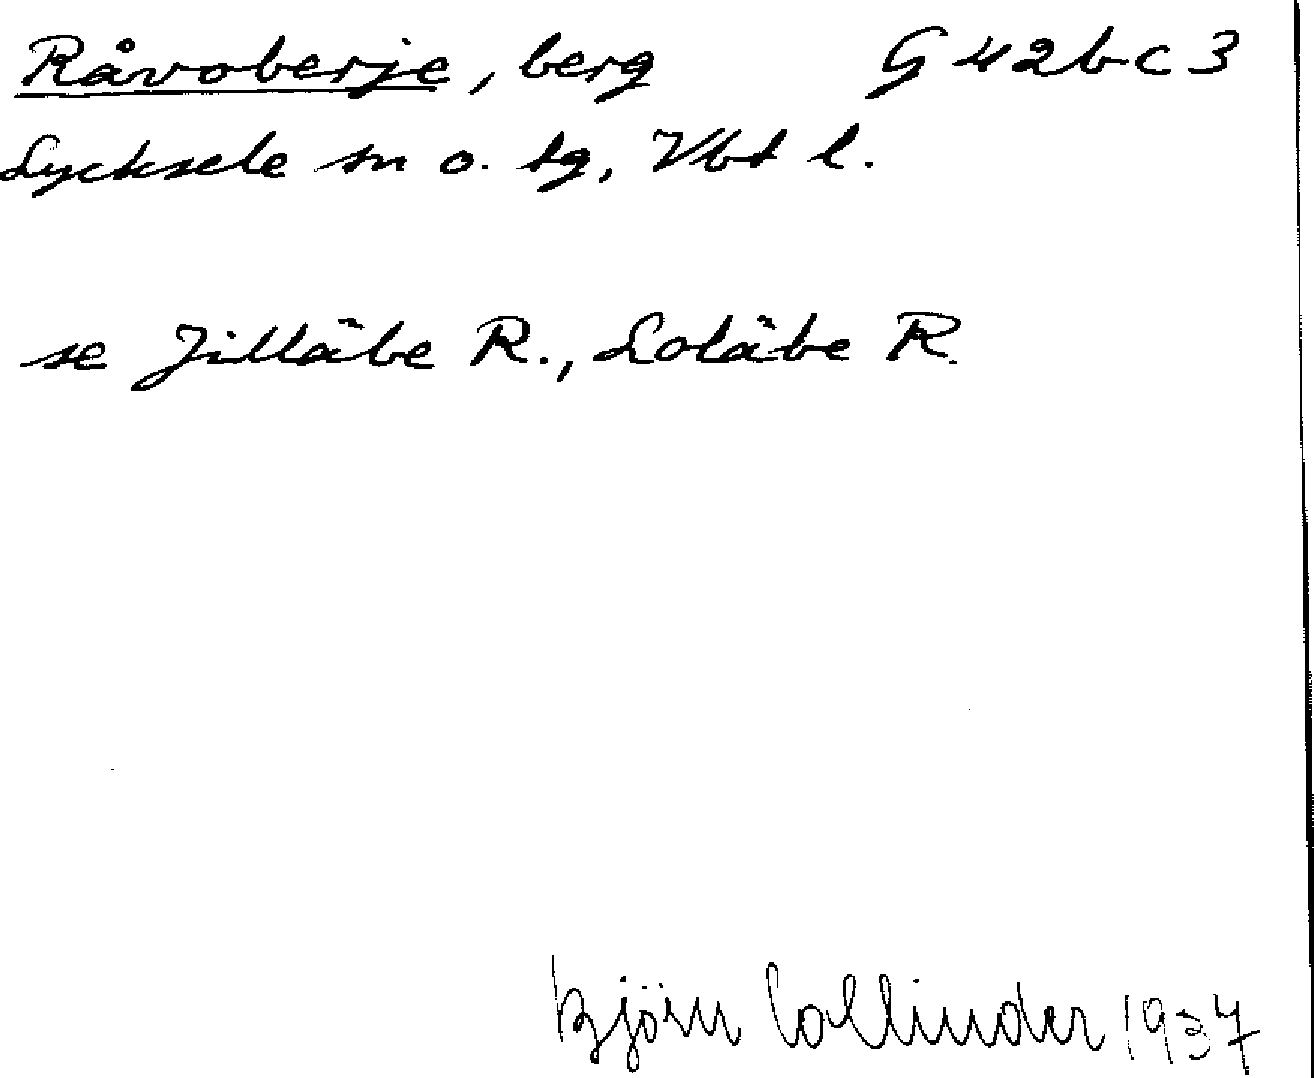 Råvoberje, berg G 42bc3
Lycksele sn o. tg, Vbt l.
se Jillābe R., Lolābe R.
Björn Collinder 1937